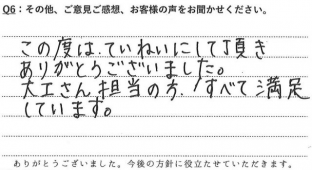 Q6：その他、ご意見ご感想、お客様の声をお聞かせください。
この度は、ていねいにして頂き
ありがとうございました。
大工さん、担当の方、すべて満足
しています。
ありがとうございました。今後の方針に役立たせていただきます。